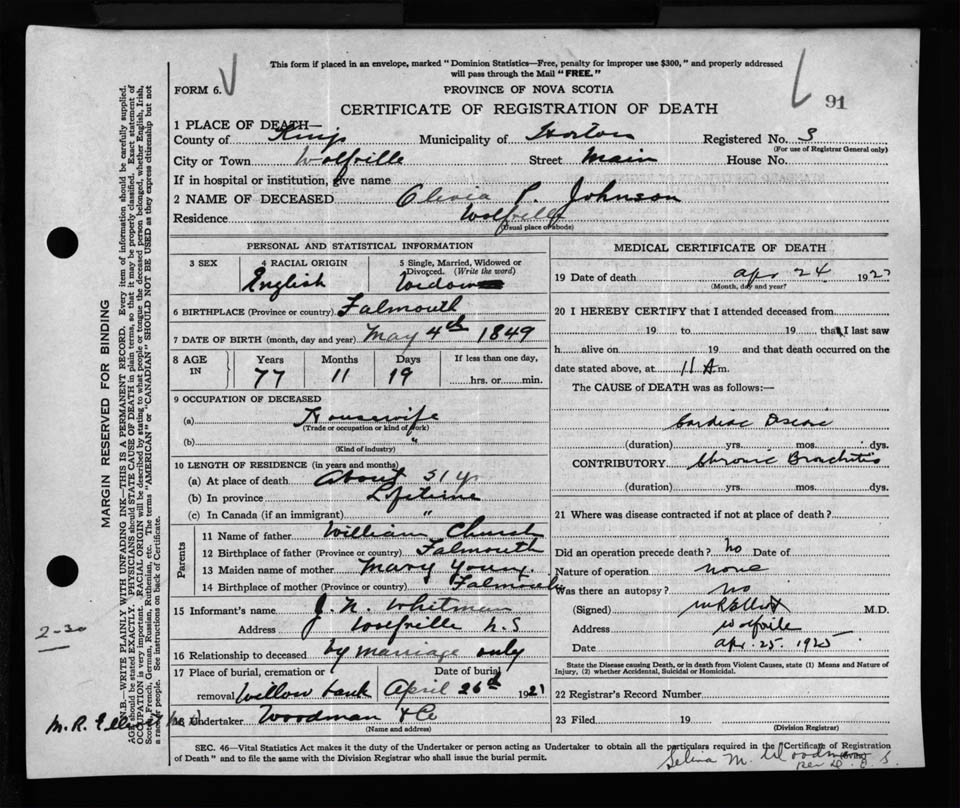 This form if placed in an envelope, marked "Dominion Statistics—Free, penalty for improper use $300," and properly addressed
will pass through the Mail "FREE."
FORM 6. PROVINCE OF NOVA SCOTIA
91
CERTIFICATE OF REGISTRATION OF DEATH
1 PLACE OF DEATH—
County of Kings Municipality of Horton Registered No. 3
(For use of Registrar General only)
City or Town Wolfville Street Main House No.
If in hospital or institution, give name
2 NAME OF DECEASED Olivia P. Johnson
Residence Wolfville
(Usual place of abode)
PERSONAL AND STATISTICAL INFORMATION
3 SEX
4 RACIAL ORIGIN
English
5 Single, Married, Widowed or
Divorced. (Write the word)
Widow
6 BIRTHPLACE (Province or country) Falmouth
7 DATE OF BIRTH (month, day and year) May 4th 1849
8 AGE IN
Years Months Days If less than one day,
77 11 19 hrs. or min.
9 OCCUPATION OF DECEASED
(a) Housewife
(Trade or occupation or kind of work)
(b) "
(Kind of industry)
10 LENGTH OF RESIDENCE (in years and months)
(a) At place of death About 51 yr
(b) In province Lifetime
(c) In Canada (if an immigrant) "
Parents
11 Name of father William Church
12 Birthplace of father (Province or country) Falmouth
13 Maiden name of mother Mary Young
14 Birthplace of mother (Province or country) Falmouth
15 Informant's name J. N. Whitman
Address Wolfville N.S
16 Relationship to deceased by marriage only
17 Place of burial, cremation or Date of burial
removal Willow bank April 26th 1927
18 Undertaker Woodman & Co
(Name and address)
MEDICAL CERTIFICATE OF DEATH
19 Date of death Apr 24 1927
(Month, day and year)
20 I HEREBY CERTIFY that I attended deceased from
19 to 19 that I last saw
h alive on 19 and that death occurred on the
date stated above, at 11 A m.
The CAUSE OF DEATH was as follows:—
Cardiac Disease
(duration) yrs. mos. dys.
CONTRIBUTORY Chronic Bronchitis
(duration) yrs. mos. dys.
21 Where was disease contracted if not at place of death?
Did an operation precede death? no Date of
Nature of operation none
Was there an autopsy? no
(Signed) M R Elliott M.D.
Address Wolfville
Date Apr. 25. 1925
State the Disease causing Death, or in death from Violent Causes, state (1) Means and Nature of
Injury, (2) whether Accidental, Suicidal or Homicidal.
22 Registrar's Record Number
23 Filed 19
(Division Registrar)
SEC. 46—Vital Statistics Act makes it the duty of the Undertaker or person acting as Undertaker to obtain all the particulars required in the Certificate of Registration
of Death" and to file the same with the Division Registrar who shall issue the burial permit.
Selina M. Woodman
MARGIN RESERVED FOR BINDING
N.B.—WRITE PLAINLY WITH UNFADING INK—THIS IS A PERMANENT RECORD. Every item of information should be carefully supplied.
AGE should be stated EXACTLY. PHYSICIANS should STATE CAUSE OF DEATH in plain terms, so that it may be properly classified. Exact statement of
OCCUPATION is very important. RACIAL ORIGIN will be described by stating to what people or tongue the deceased person belonged, whether English, Irish,
Scotch, French, German, Russian, Ruthenian, etc. The terms "AMERICAN" or "CANADIAN" SHOULD NOT BE USED as they express citizenship but not
a race or people. See instructions on back of Certificate.
2-30
M. R. Elliott